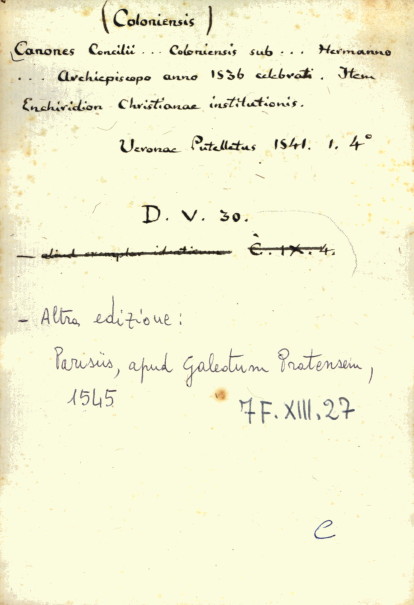 (Coloniensis)
Canones Concilii ... Coloniensis sub ... Hermanno
... Archiepiscopo anno 1836 celebrati. Item
Enchiridion Christianae institutionis.
Veronae Putelletus 1841. 1. 4°
D. V. 30.
— aliud exemplar identicum C. IX. 4.
- Altra edizione:
Parisiis, apud Galeotum Pratensem,
1545
7 F. XIII. 27
C